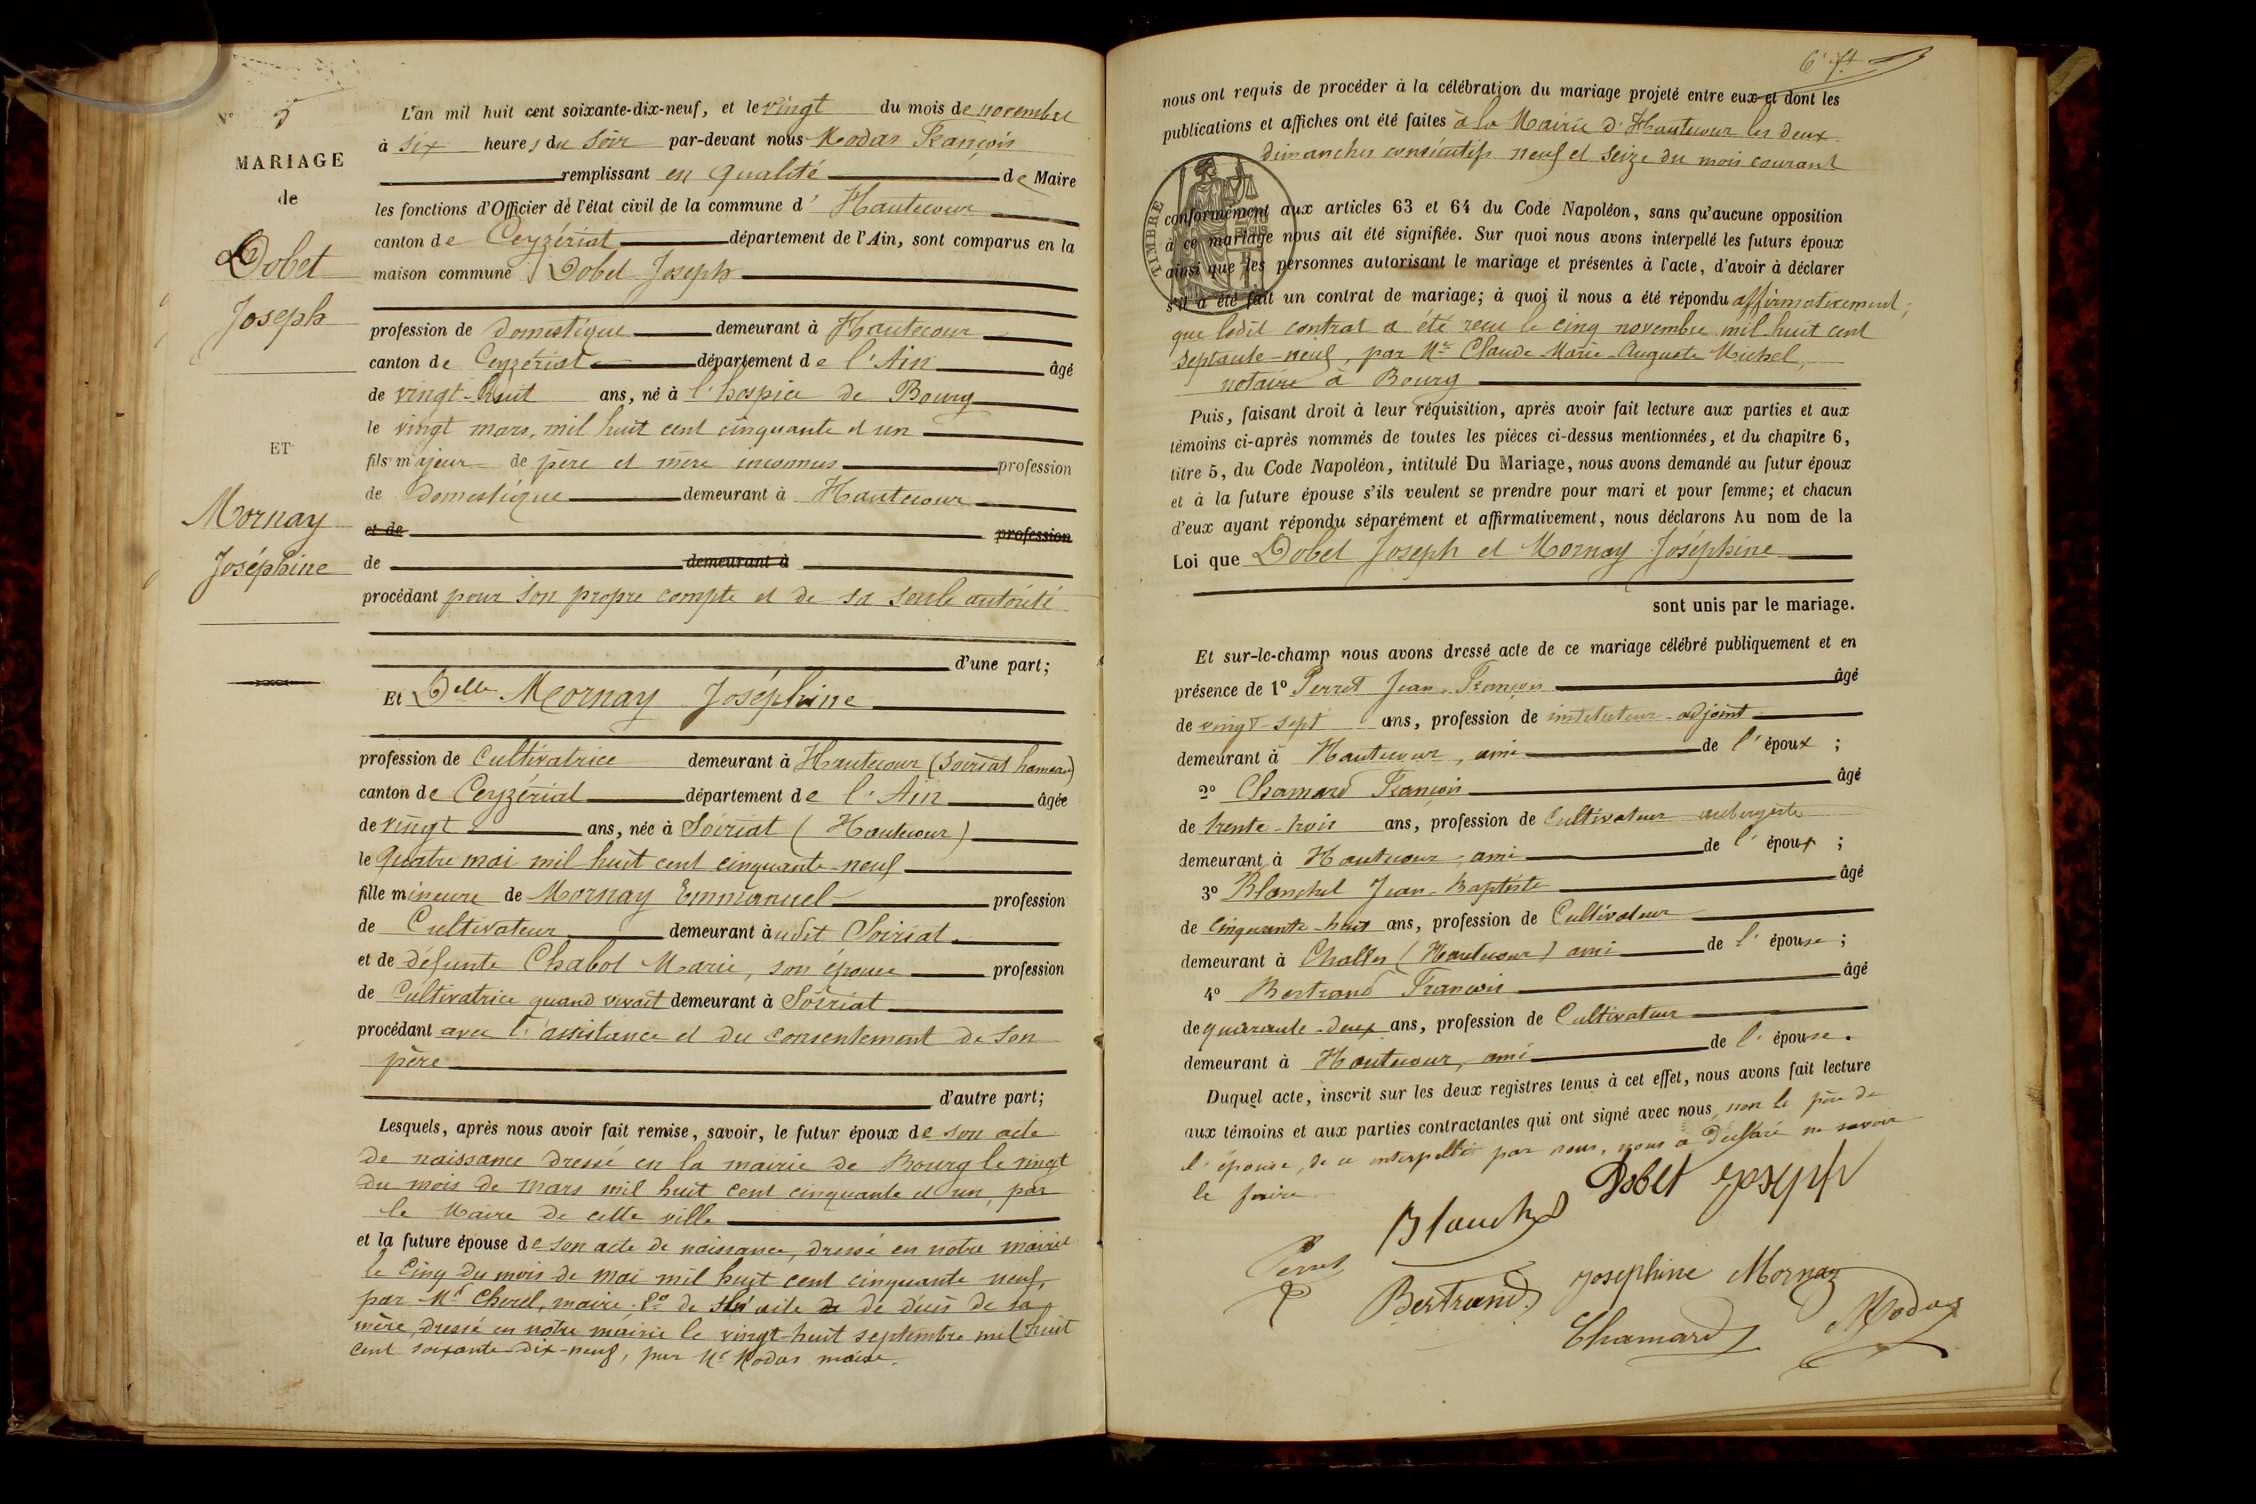 N° 5
MARIAGE
de
Dobet
Joseph
ET
Mornay
Joséphine
L'an mil huit cent soixante-dix-neuf, et le vingt du mois de novembre
à six heures du soir par-devant nous Modas François
remplissant en qualité de Maire
les fonctions d'Officier de l'état civil de la commune d' Hautecour
canton de Ceyzériat département de l'Ain, sont comparus en la
maison commune Dobet Joseph
profession de domestique demeurant à Hautecour
canton de Ceyzériat département de l'Ain âgé
de vingt-huit ans, né à l'hospice de Bourg
le vingt mars, mil huit cent cinquante et un
fils majeur de père et mère inconnus profession
de domestique demeurant à Hautecour
et de profession
de demeurant à
procédant pour son propre compte et de sa seule autorité
d'une part;
Et Delle Mornay Joséphine
profession de Cultivatrice demeurant à Hautecour (Soiriat hameau)
canton de Ceyzériat département de l'Ain âgée
de vingt ans, née à Soiriat (Hautecour)
le quatre mai mil huit cent cinquante-neuf
fille mineure de Mornay Emmanuel profession
de Cultivateur demeurant àudit Soiriat
et de défunte Chabot Marie, son épouse profession
de Cultivatrice quand vivait demeurant à Soiriat
procédant avec l'assistance et du consentement de son
père
d'autre part;
Lesquels, après nous avoir fait remise, savoir, le futur époux de son acte
de naissance dressé en la mairie de Bourg le vingt
du mois de mars mil huit cent cinquante et un, par
le Maire de cette ville
et la future épouse de son acte de naissance, dressé en notre mairie
le cinq du mois de mai mil huit cent cinquante neuf,
par Mr Cherel, maire; 2° de l'acte de décès de sa
mère dressé en notre mairie le vingt-huit septembre mil huit
cent soixante-dix-neuf, par Mr Modas maire.
nous ont requis de procéder à la célébration du mariage projeté entre eux et dont les
publications et affiches ont été faites à la Mairie d'Hautecour les deux
dimanches consécutifs neuf et seize du mois courant
TIMBRE
conformément aux articles 63 et 64 du Code Napoléon, sans qu'aucune opposition
à ce mariage nous ait été signifiée. Sur quoi nous avons interpellé les futurs époux
ainsi que les personnes autorisant le mariage et présentes à l'acte, d'avoir à déclarer
s'il a été fait un contrat de mariage; à quoi il nous a été répondu affirmativement,
que ledit contrat a été reçu le cinq novembre mil huit cent
septante-neuf, par Me Claude Marie-Auguste Michel,
notaire à Bourg
Puis, faisant droit à leur réquisition, après avoir fait lecture aux parties et aux
témoins ci-après nommés de toutes les pièces ci-dessus mentionnées, et du chapitre 6,
titre 5, du Code Napoléon, intitulé Du Mariage, nous avons demandé au futur époux
et à la future épouse s'ils veulent se prendre pour mari et pour femme; et chacun
d'eux ayant répondu séparément et affirmativement, nous déclarons Au nom de la
Loi que Dobet Joseph et Mornay Joséphine
sont unis par le mariage.
Et sur-le-champ nous avons dressé acte de ce mariage célébré publiquement et en
présence de 1° Perret Jean-François âgé
de vingt-sept ans, profession de instituteur-adjoint
demeurant à Hautecour, ami de l'époux ;
2° Chamard François âgé
de trente-trois ans, profession de Cultivateur aubergiste
demeurant à Hautecour, ami de l'époux ;
3° Blanchet Jean-Baptiste âgé
de cinquante-huit ans, profession de Cultivateur
demeurant à Challes (Hautecour) ami de l'épouse ;
4° Bertrand François âgé
de quarante-deux ans, profession de Cultivateur
demeurant à Hautecour, ami de l'épouse.
Duquel acte, inscrit sur les deux registres tenus à cet effet, nous avons fait lecture
aux témoins et aux parties contractantes qui ont signé avec nous, non le père de
l'épouse, de ce interpellé par nous, nous a déclaré ne savoir
le faire
Dobet Joseph
Blanchet
Perret
Josephine Mornay
Bertrand
Modas
Chamard